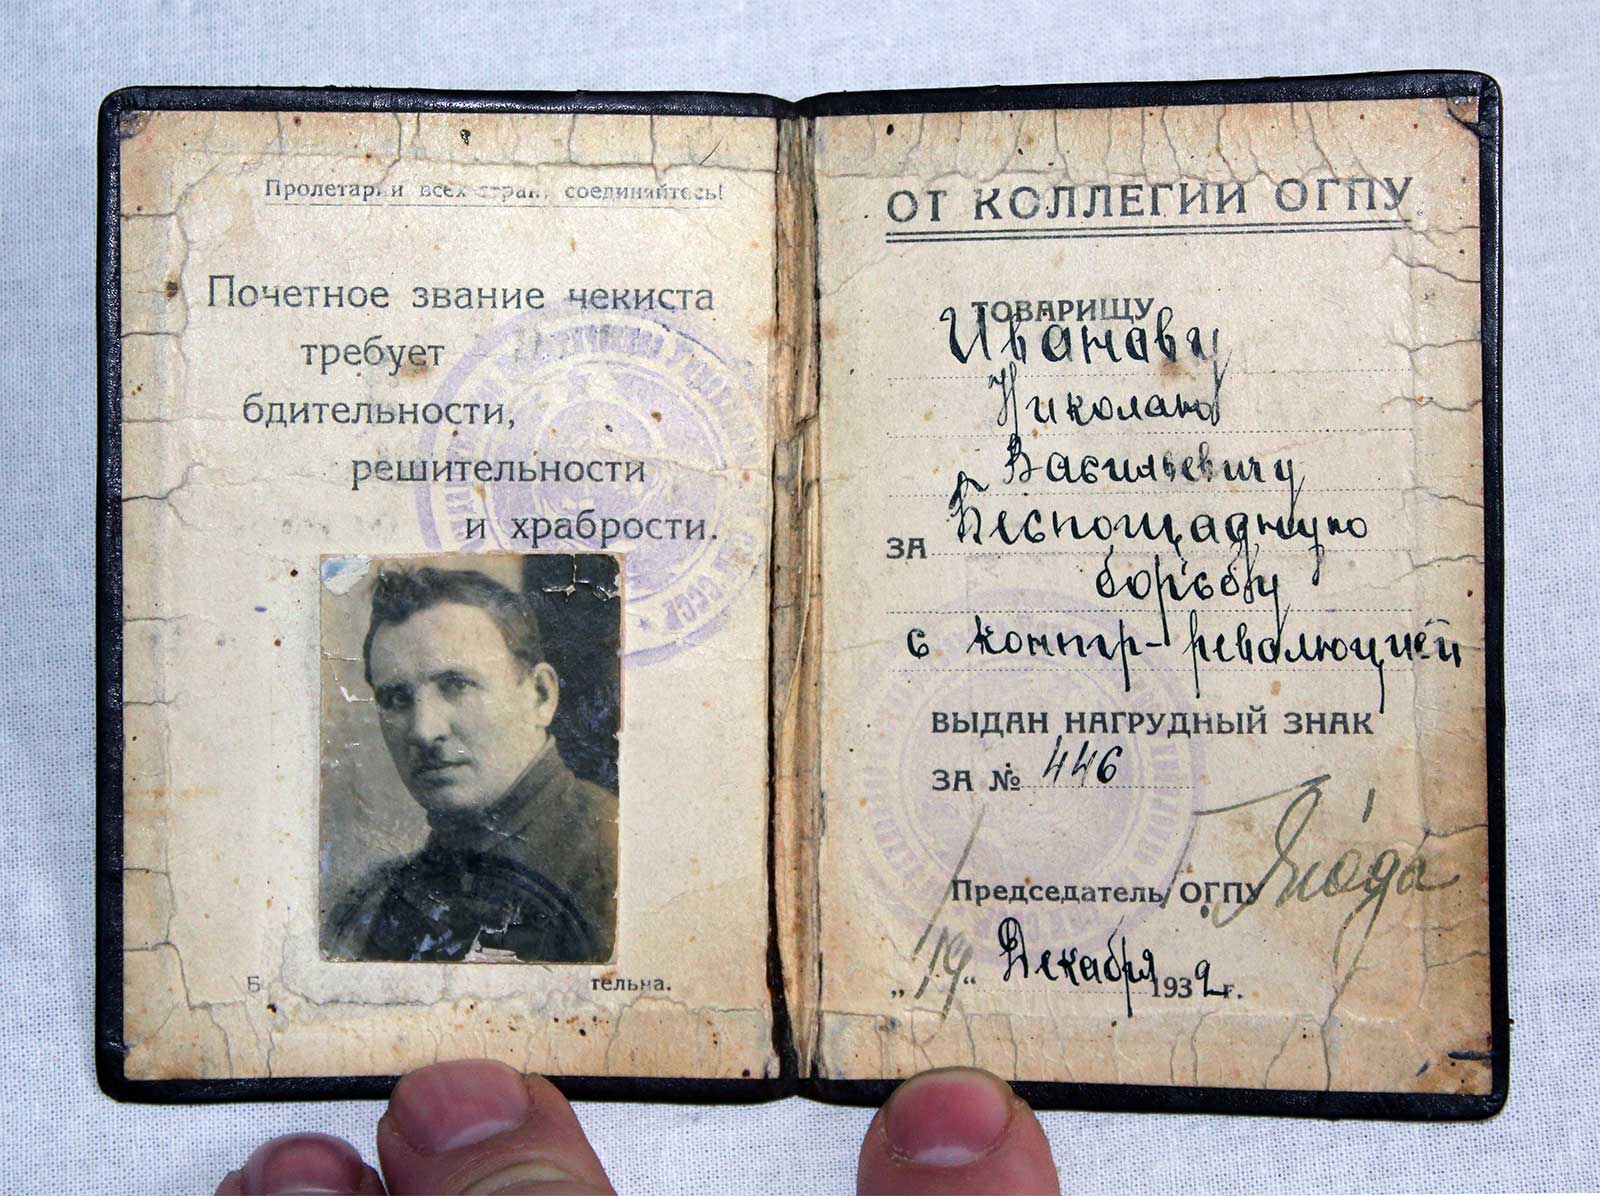 Пролетарии всех стран, соединяйтесь!
Почетное звание чекиста
требует
бдительности,
решительности
и храбрости.
Б тельна.
ОТ КОЛЛЕГИИ ОГПУ
ТОВАРИЩУ
Иванаву
Николаю
Васильевичу
ЗА Беспощадную
борьбу
с контр-революцией
ВЫДАН НАГРУДНЫЙ ЗНАК
ЗА № 446
Председатель ОГПУ Ягода
„19“ Декабря 1932 г.